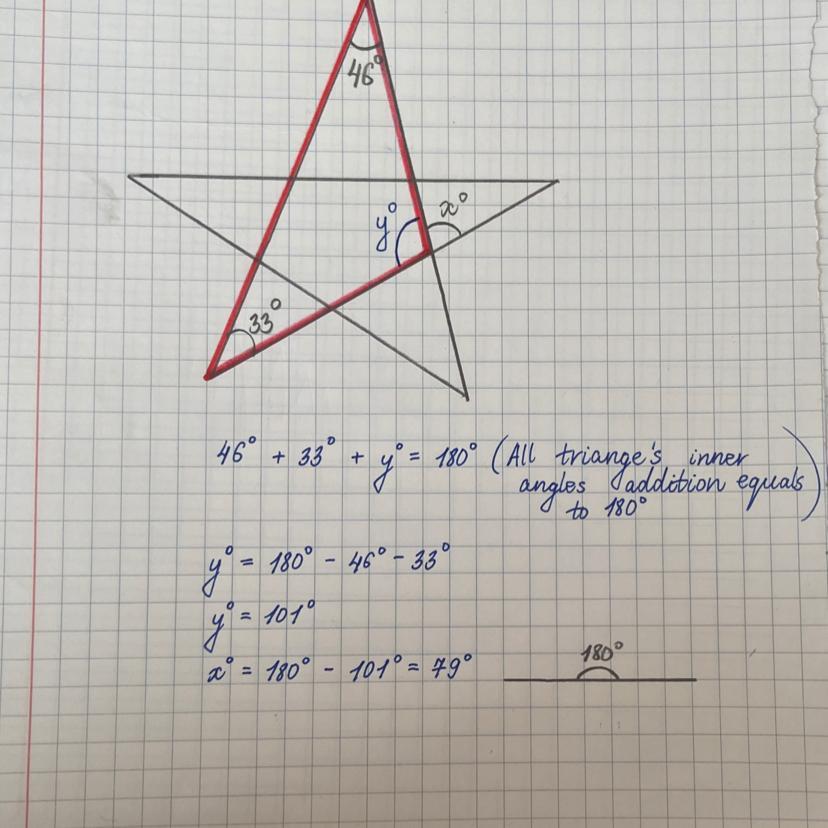 46°
y° x°
33°
46° + 33° + y° = 180° (All triange's inner
angles addition equals
to 180°)
y° = 180° - 46° - 33°
y° = 101°
x° = 180° - 101° = 79°
180°